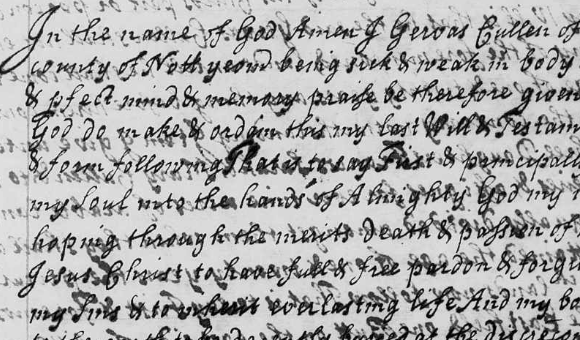 In the name of God Amen I Gervas Cullen of
county of Nott yeom being sick & weak in body
& pfect mind & memory praise be therefore given
God do make & ordain this my last Will & Testam
& form following That is to say First & principally
my Soul into the hands of Almighty God my
hoping through the merits death & passion of
Jesus Christ to have full & free pardon & forgiv
my sins & to inherit everlasting life And my bo
to the earth to be decently buried at the discretion